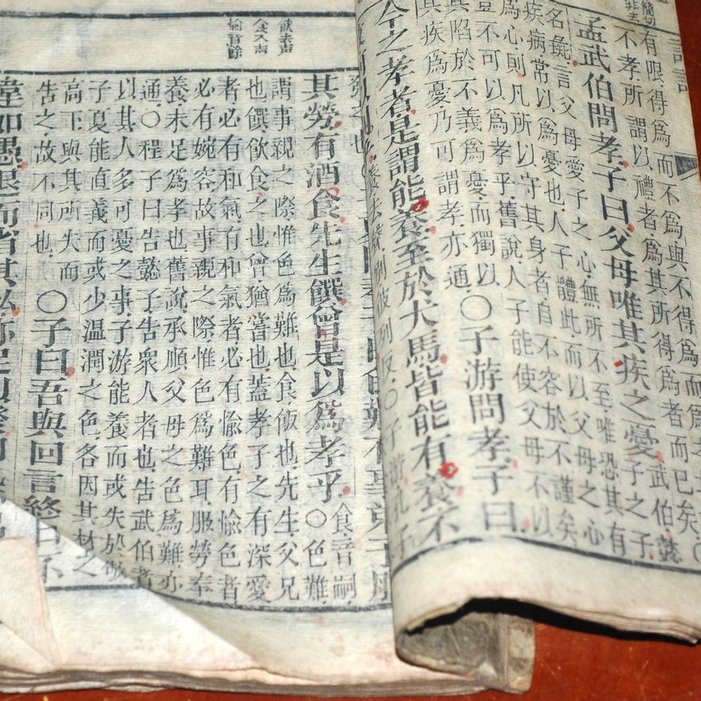 有限得爲而不爲與不得爲而爲之
不孝所謂以禮者爲其所得爲者而已矣○
孟武伯問孝子曰父母唯其疾之憂
武伯懿
子之子
名彘言父母愛子之心無所不至唯恐其有
疾病常以爲憂也人子體此而以父母之心
爲心則凡所以守其身者自不容於不謹矣
豈不可以爲孝乎舊說人子能使父母不以
其陷於不義爲憂而獨以
其疾爲憂乃可謂孝亦通
○子游問孝子曰
今之孝者是謂能養至於犬馬皆能有養不
其勞有酒食先生饌曾是以爲孝乎
食音嗣
○色難
謂事親之際惟色爲難也食飯也先生父兄
也饌飲食之也曾猶嘗也蓋孝子之有深愛
者必有和氣有和氣者必有愉色有愉色者
必有婉容故事親之際惟色爲難耳服勞奉
養未足爲孝也舊說承順父母之色爲難亦
通○程子曰告懿子告衆人者也告武伯者
以其人多可憂之事子游能養而或失於敬
子夏能直義而或少溫潤之色各因其材之
高下與其所失而
告之故不同也
○子曰吾與回言終日不
違如愚退而省其私亦足以發